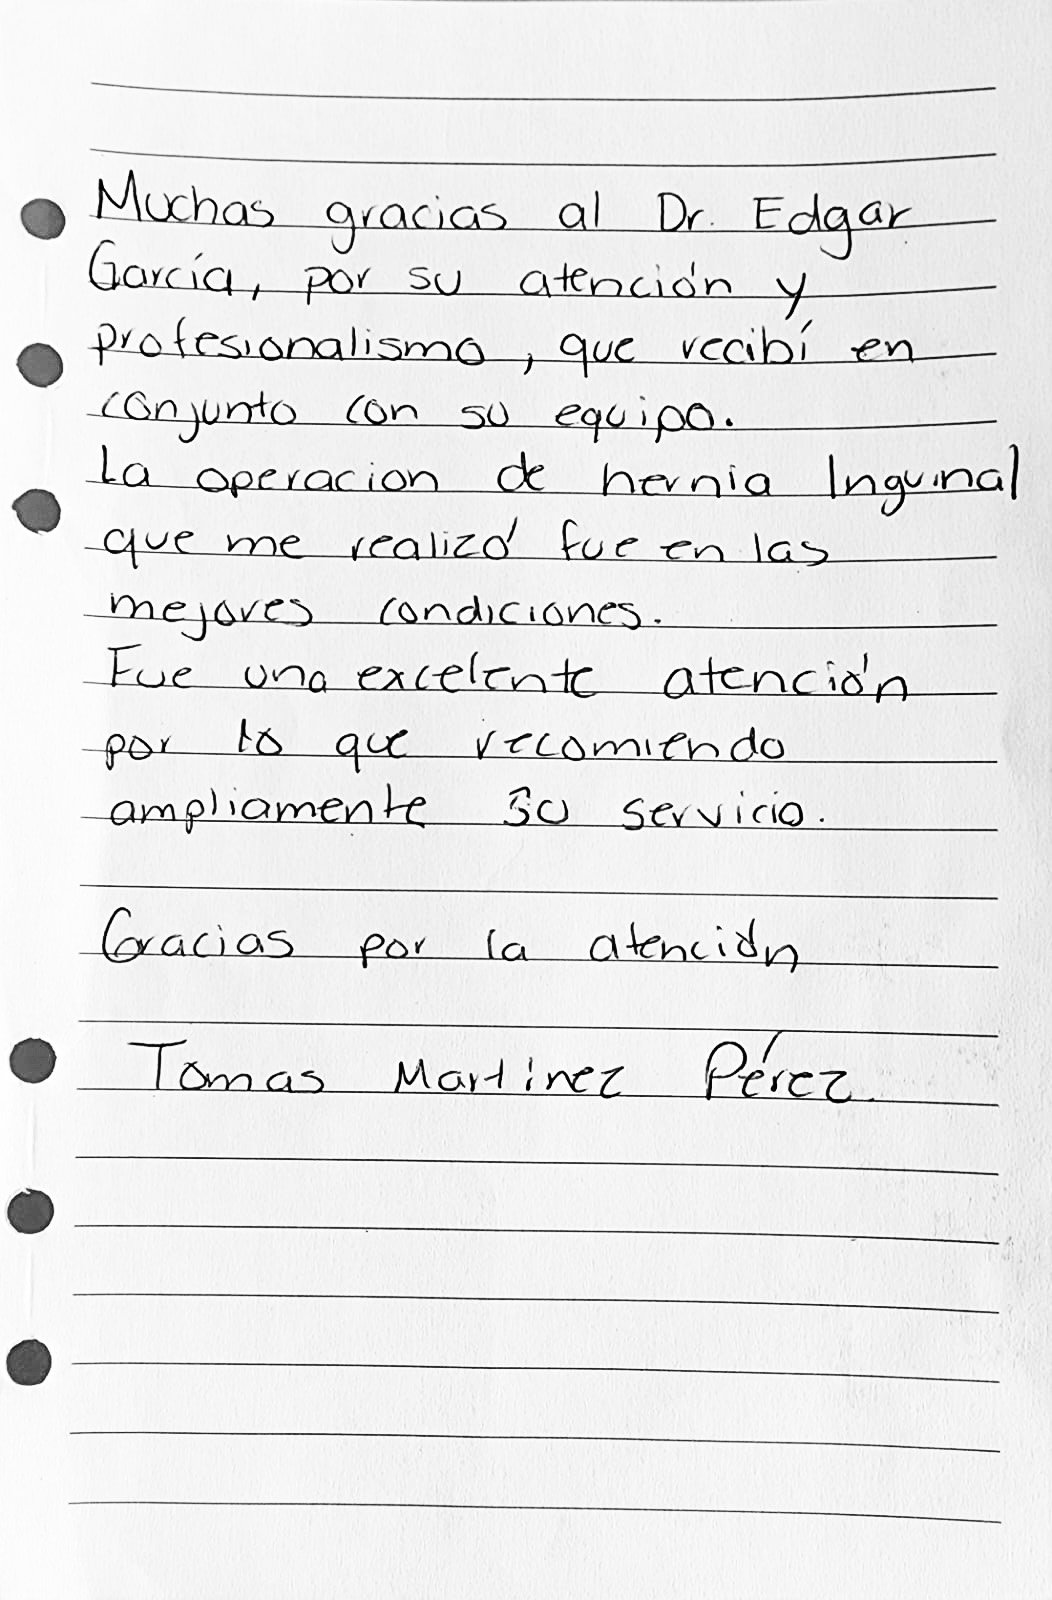 Muchas gracias al Dr. Edgar
García, por su atención y
profesionalismo, que recibí en
conjunto con su equipo.
La operacion de hernia Inguinal
que me realizó fue en las
mejores condiciones.
Fue una excelente atención
por lo que recomiendo
ampliamente su servicio.
Gracias por la atención
Tomas Martinez Pérez.